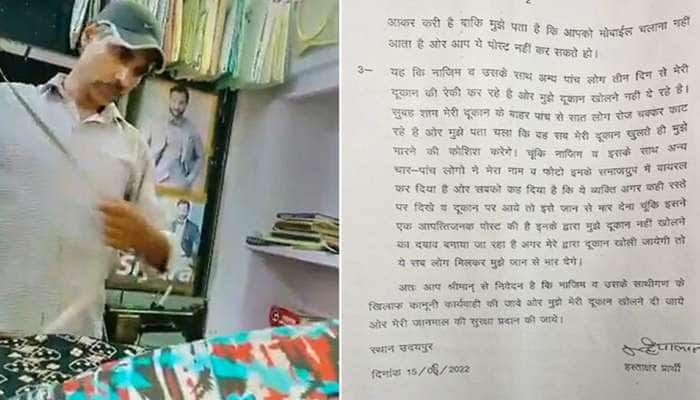 2
आकर करी है बाकि मुझे पता है कि आपको मोबाईल चलाना नहीं
आता है ओर आप ये पोस्ट नहीं कर सकते हो।
3- यह कि नाजिम व उसके साथ अन्य पांच लोग तीन दिन से मेरी
दूकान की रेकी कर रहे है ओर मुझे दूकान खोलने नहीं दे रहे है।
सुबह शाम मेरी दूकान के बाहर पांच से सात लोग रोज चक्कर काट
रहे है ओर मुझे पता चला कि वह सब मेरी दूकान खुलते ही मुझे
मारने की कोशिश करेगे। चूंकि नाजिम व इसके साथ अन्य
चार-पांच लोगो ने मेरा नाम व फोटो इनके समाजग्रुप में वायरल
कर दिया है ओर सबको कह दिया है कि ये व्यक्ति अगर कही रस्ते
पर दिखे व दूकान पर आये तो इसे जान से मार देना चूंकि इसने
एक आपत्तिजनक पोस्ट की है इनके द्वारा मुझे दूकान नहीं खोलने
का दबाव बनाया जा रहा है अगर मेरे द्वारा दूकान खोली जायेगी तो
ये सब लोग मिलकर मुझे जान से मार देगे।
अतः आप श्रीमान् से निवेदन है कि नाजिम व उसके साथीगण के
खिलाफ कानूनी कार्यवाही की जावे ओर मुझे मेरी दूकान खोलने दी जाये
ओर मेरी जानमाल की सुरक्षा प्रदान की जाये।
स्थान उदयपुर
दिनांक 15/06/2022
हस्ताक्षर प्रार्थी